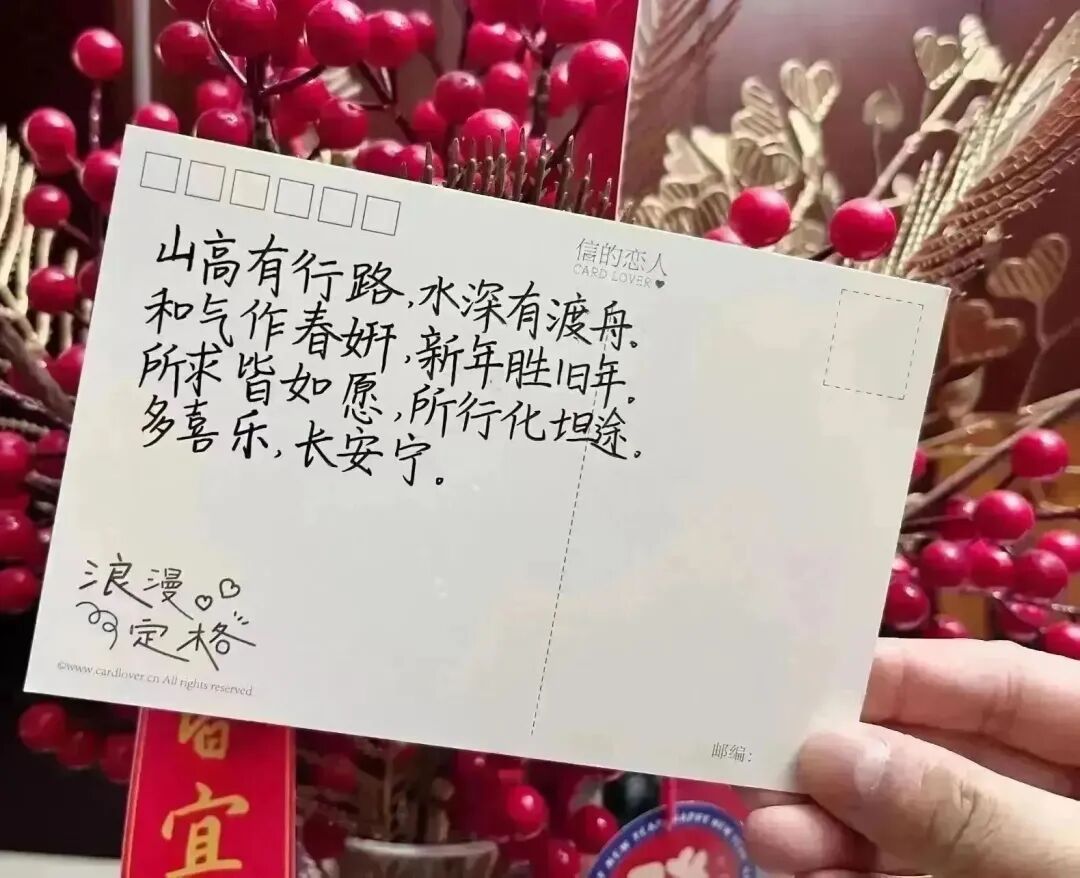 信的恋人
CARD LOVER
山高有行路,水深有渡舟。
和气作春妍,新年胜旧年。
所求皆如愿,所行化坦途。
多喜乐,长安宁。
浪漫
定格
©www.cardlover.cn All rights reserved
邮编:
宜